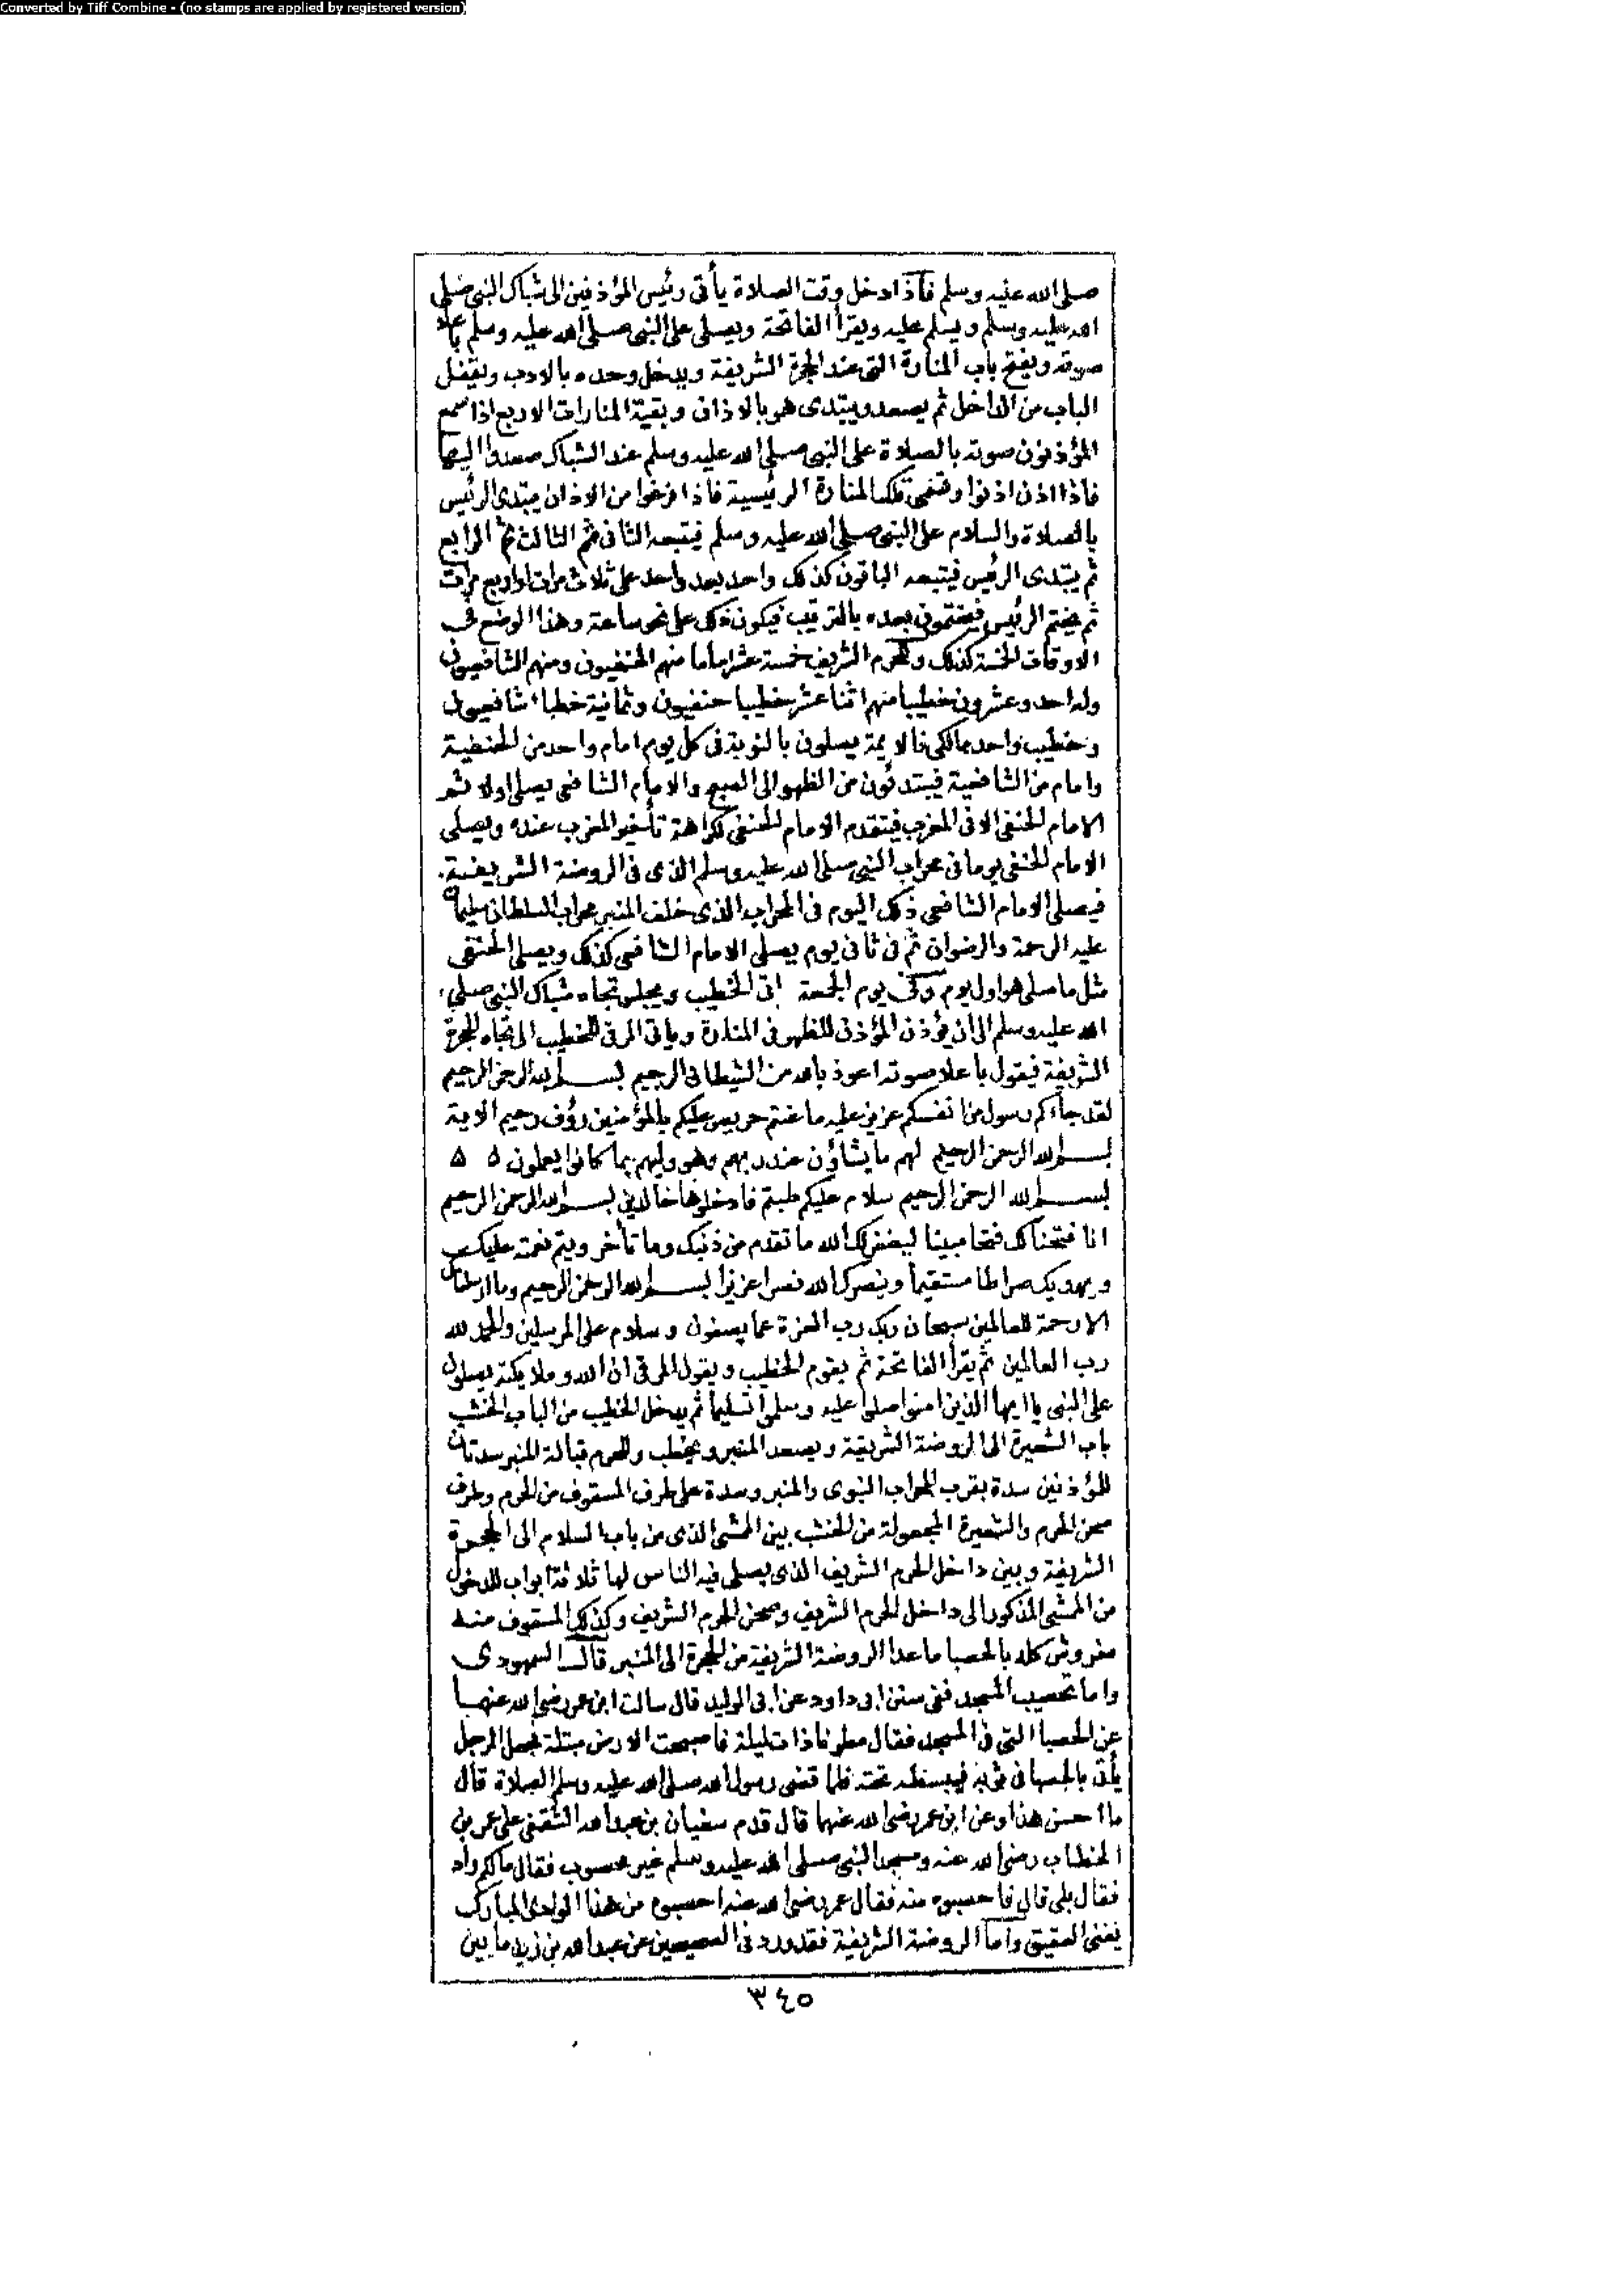 Converted by Tiff Combine - (no stamps are applied by registered version)
صلى الله عليه وسلم فاذا دخل وقت الصلاة يأتى رئيس المؤذنين الى شباك النبى صلى
الله عليه وسلم ويسلم عليه ويقرأ الفاتحة ويصلى على النبى صلى الله عليه وسلم باعلا
صوته ويفتح باب المنارة التى عند الحجرة الشريفة ويدخل وحده بالادب ويقفل
الباب من الداخل ثم يصعد ويبتدى هو بالاذان وبقية المنارات الاربع اذا سمع
المؤذنون صوته بالصلاة على النبى صلى الله عليه وسلم عند الشباك صعدوا اليها
فاذا اذن اذنوا وتسمى تلك المنارة الرئيسية فاذا فرغوا من الاذان يبتدى الرئيس
بالصلاة والسلام على النبى صلى الله عليه وسلم فيتبعه الثانى ثم الثالث ثم الرابع
ثم يبتدى الرئيس فيتبعه الباقون كذلك واحد بعد واحد على ثلاث مرات او اربع مرات
ثم يختم الرئيس فيختمون بعده بالترتيب فيكون ذلك على نحو ساعة وهذا الوضع فى
الاوقات الخمسة كذلك وللحرم الشريف خمسة عشر اماما منهم الحنفيون ومنهم الشافعيون
وله احد وعشرون خطيبا منهم اثنا عشر خطيبا حنفيون وثمانية خطباء شافعيون
وخطيب واحد مالكى فالايمة يصلون بالنوبة فى كل يوم امام واحد من الحنفية
وامام من الشافعية فيبتدئون من الظهر الى الصبح والامام الشافعى يصلى اولا ثم
الامام الحنفى الا فى المغرب فيتقدم الامام الحنفى لكراهة تأخير المغرب عنده ويصلى
الامام الحنفى يوما فى محراب النبى صلى الله عليه وسلم الذى فى الروضة الشريفة
فيصلى الامام الشافعى ذلك اليوم فى المحراب الذى خلف المنبر محراب السلطان سليمان
عليه الرحمة والرضوان ثم فى ثانى يوم يصلى الامام الشافعى كذلك ويصلى الحنفى
مثل ما صلى هو اول يوم وفى يوم الجمعة اتى الخطيب ويجلس تجاه شباك النبى صلى
الله عليه وسلم الى ان يؤذن المؤذن للظهر فى المنارة وياتى المرقى للخطيب الى تجاه الحجرة
الشريفة فيقول باعلا صوته اعوذ بالله من الشيطان الرجيم بسم الله الرحمن الرحيم
لقد جاءكم رسول من انفسكم عزيز عليه ما عنتم حريص عليكم بالمؤمنين رؤف رحيم الاية
بسم الله الرحمن الرحيم لهم ما يشاؤن عند ربهم وهو وليهم بما كانوا يعملون ۵ ۵
بسم الله الرحمن الرحيم سلام عليكم طبتم فادخلوها خالدين بسم الله الرحمن الرحيم
انا فتحنا لك فتحا مبينا ليغفر لك الله ما تقدم من ذنبك وما تأخر ويتم نعمته عليك
ويهديك صراطا مستقيما وينصرك الله نصرا عزيزا بسم الله الرحمن الرحيم وما ارسلناك
الا رحمة للعالمين سبحان ربك رب العزة عما يصفون وسلام على المرسلين والحمد لله
رب العالمين ثم يقرأ الفاتحة ثم يقوم الخطيب ويقول المرقى ان الله وملايكته يصلون
على النبى يا ايها الذين امنوا صلوا عليه وسلموا تسليما ثم يدخل الخطيب من الباب الخشب
باب الشعيرة الى الروضة الشريفة ويصعد المنبر ويخطب وللحرم قبالة المنبر سدتان
للمؤذنين سدة بقرب المحراب النبوى والمنبر وسدة على طرف المسقوف من الحرم وطرف
صحن الحرم والشعيرة المجعولة من الخشب بين المشى الذى من باب السلام الى الحجرة
الشريفة وبين داخل الحرم الشريف الذى يصلى فيه الناس لها ثلاثة ابواب للدخول
من المشى المذكور الى داخل الحرم الشريف وصحن الحرم الشريف وكذلك المسقوف منه
مفروش كله بالحصبا ما عدا الروضة الشريفة من الحجرة الى المنبر قال السمهودى
واما تحصيب المسجد ففى سنن ابى داود عن ابى الوليد قال سالت ابن عمر رضى الله عنهما
عن الحصبا التى فى المسجد فقال مطرنا ذات ليلة فاصبحت الارض مبتلة فجعل الرجل
يأتى بالحصبا فى ثوبه فيبسطه تحته فلما قضى رسول الله صلى الله عليه وسلم الصلاة قال
ما احسن هذا وعن ابن عمر رضى الله عنهما قال قدم سفيان بن عبد الله الثقفى على عمر بن
الخطاب رضى الله عنه ومسجد النبى صلى الله عليه وسلم غير محصوب فقال ما لكم واد
فقال بلى قال فاحصبوه منه فقال عمر رضى الله عنه احصبوه من هذا الوادى المبارك
يعنى العقيق واما الروضة الشريفة فقد ورد فى الصحيحين عن عبد الله بن زيد ما بين
٣٤٥